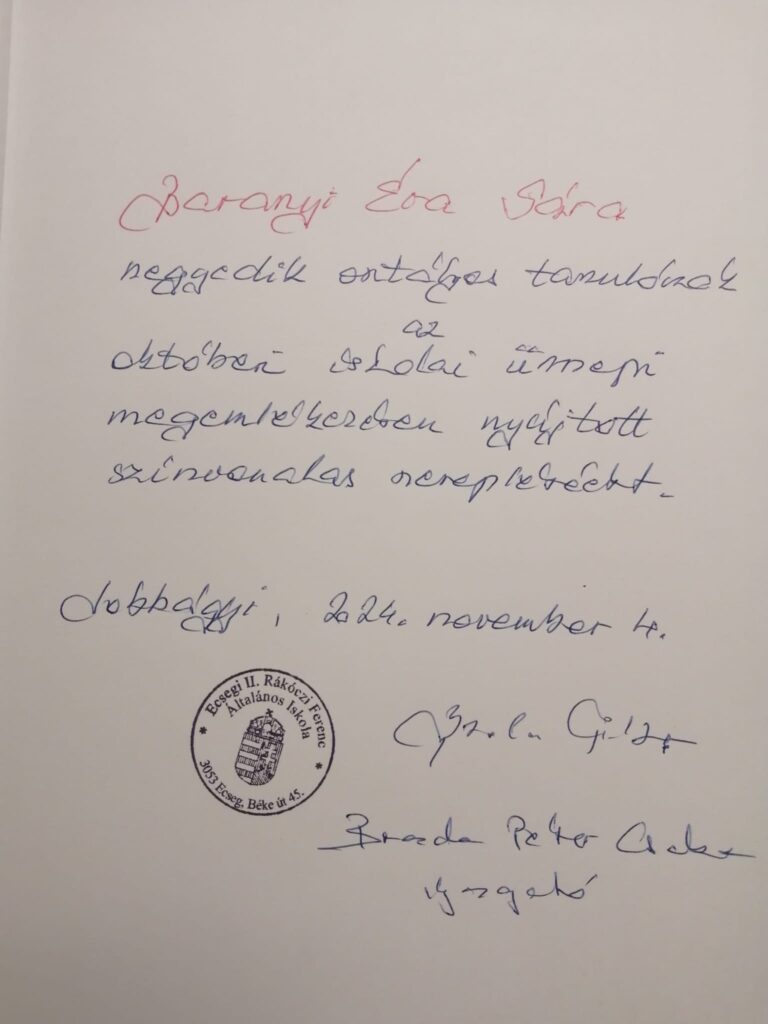 Baranyi Éva Sára
negyedik osztályos tanulónak
az
októberi iskolai ünnepi
megemlékezésen nyújtott
színvonalas szerepléséért.
Jobbágyi, 2024. november 4.
Ecsegi II. Rákóczi Ferenc
Általános Iskola
* *
3053 Ecseg, Béke út 45.
Brezda Péter
igazgató